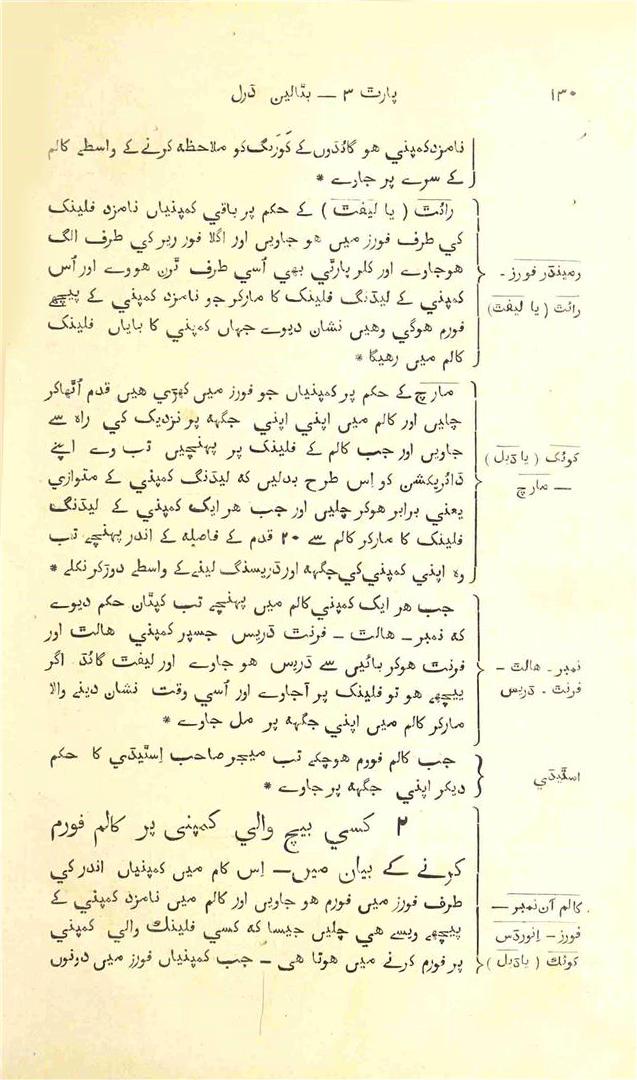 ۱۳۰
پارٹ ۳ — بٹالین ڈرل
نامزد کمپني هو گائڈوں کے کَوَرِنگ کو ملاحظہ کرنے کے واسطے کالم
کے سرے پر جاوے *
رائٹ ( یا لیفٹ ) کے حکم پر باقي کمپنیاں نامزد فلینک
کي طرف فورز میں هو جاویں اور اگلا فور ریر کي طرف الگ
هوجاوے اور کلر پارٹي بھي اُسي طرف ٹرن هووے اور اُس
کمپني کے لیڈنگ فلینک کا مارکر جو نامزد کمپني کے پیچھے
فورم هوگي وهیں نشان دیوے جہاں کمپني کا بایاں فلینک
کالم میں رهیگا *
رمینڈر فورز -
رائٹ ( یا لیفٹ )
مارچ کے حکم پر کمپنیاں جو فورز میں کھڑي هیں قدم اُٹھاکر
چلیں اور کالم میں اپني اپني جگہہ پر نزدیک کي راہ سے
جاویں اور جب کالم کے فلینک پر پہنچیں تب وے اپنے
ڈائریکشن کو اِس طرح بدلیں کہ لیڈنگ کمپني کے متوازي
یعني برابر هوکر چلیں اور جب هر ایک کمپني کے لیڈنگ
فلینک کا مارکر کالم سے ۲۰ قدم کے فاصلہ کے اندر پہنچے تب
وہ اپني کمپني کي جگہہ اور ڈریسنگ لینے کے واسطے دوڑکر نکلے *
کوئک ( یا ڈبل )
— مارچ
جب هر ایک کمپني کالم میں پہنچے تب کپتان حکم دیوے
کہ نمبر - هالٹ - فرنٹ ڈریس جسپر کمپني هالٹ اور
فرنٹ هوکر بائیں سے ڈریس هو جاوے اور لیفٹ گائڈ اگر
پیچھے هو تو فلینک پر آجاوے اور اُسي وقت نشان دینے والا
مارکر کالم میں اپني جگہہ پر مل جاوے *
نمبر - هالٹ -
فرنٹ - ڈریس
جب کالم فوورم هوچکے تب میجر صاحب اِسٹیڈي کا حکم
دیکر اپني جگہہ پر جاوے *
اسٹیڈي
۲ کسي بیچ والي کمپنی پر کالم فورم
کرنے کے بیان میں — اِس کام میں کمپنیاں اندر کي
طرف فورز میں فورم هو جاویں اور کالم میں نامزد کمپني کے
پیچھے ویسے هي چلیں جیسا کہ کسي فلینک والي کمپني
پر فورم کرنے میں هوتا هی - جب کمپنیاں فورز میں دونوں
کالم آن نمبر —
فورز - اِنورڈس
کوئک ( یا ڈبل )